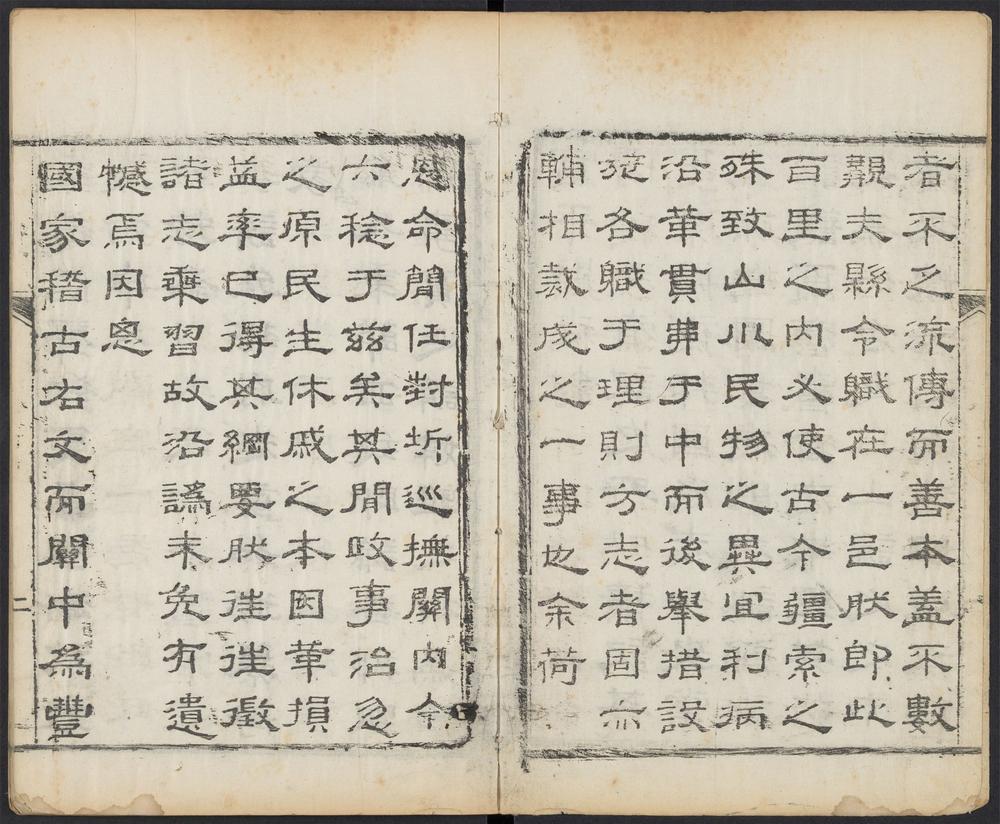 者不乏流傳而善本蓋不數
覯夫縣令職在一邑肰即此
百里之内必使古今疆索之
殊致山川民物之異宜利病
沿革貫弗于中而後舉措設
施各職于理則方志者固亦
輔相裁成之一事也余荷
恩命簡任封圻巡撫關内今
六稔于兹矣其間政事治忽
之原民生休戚之本因革損
益率已得其綱要肰徃徃徵
諸志乘習故沿譌未免有遺
憾焉因思
國家稽古右文而關中為豐
二